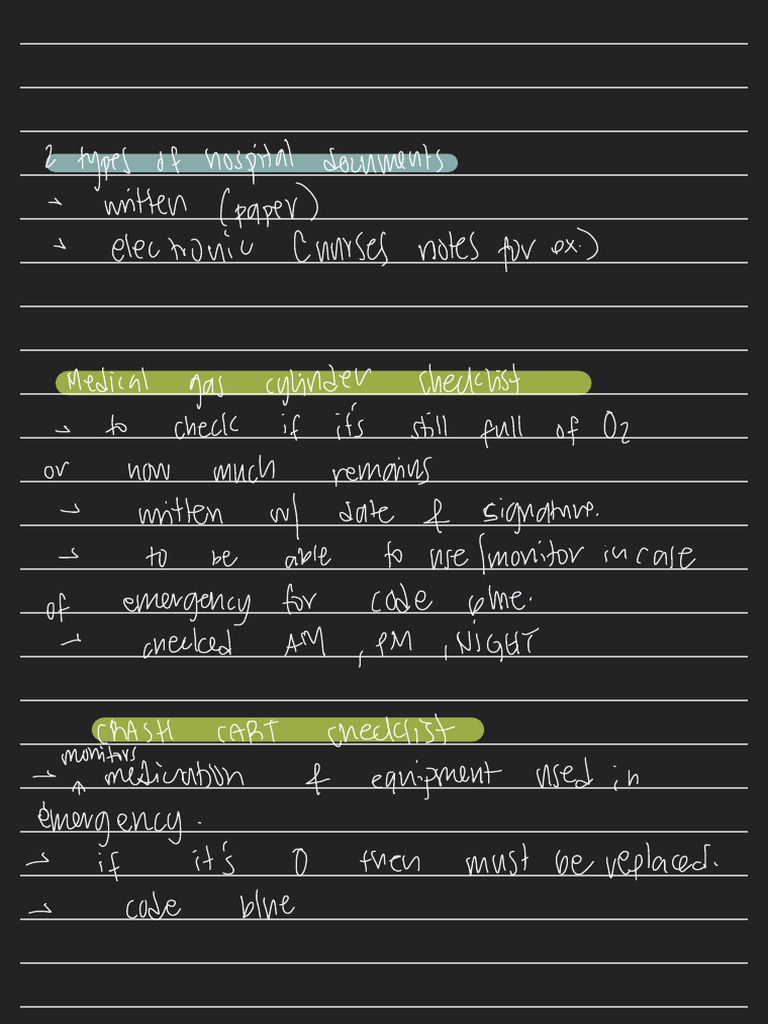 2 types of hospital documents
→ written (paper)
→ electronic (nurses notes for ex.)
Medical gas cylinder checklist
→ to check if it's still full of O2
or how much remains
→ written w/ date & signature.
→ to be able to use/monitor in case
of emergency for code blue.
→ checked AM, PM, NIGHT
CRASH CART checklist
monitors
→ ↑ medication & equipment used in
emergency.
→ if it's 0 then must be replaced.
→ code blue